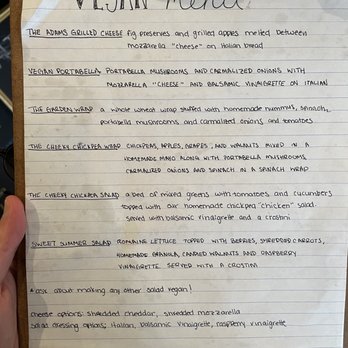 VEGAN Menu
THE ADAMS GRILLED CHEESE fig preserves and grilled apples melted between
mozzarella "cheese" on Italian bread
VEGAN PORTABELLA PORTABELLA MUSHROOMS AND CARMALIZED ONIONS WITH
MOZZARELLA "CHEESE" AND BALSAMIC VINAIGRETTE ON ITALIAN
THE GARDEN WRAP a whole wheat wrap stuffed with homemade hummus, spinach,
portabella mushrooms and carmalized onions and tomatoes
THE CHEEKY CHICKPEA WRAP CHICKPEAS, APPLES, GRAPES, AND WALNUTS MIXED IN A
HOMEMADE MAYO ALONG WITH PORTABELLA MUSHROOMS,
CARMALIZED ONIONS AND SPINACH IN A SPINACH WRAP
THE CHEEKY CHICKPEA SALAD a bed of mixed greens with tomatoes and cucumbers
topped with our homemade chickpea "chicken" salad.
served with balsamic vinaigrette and a crostini
SWEET SUMMER SALAD ROMAINE LETTUCE TOPPED WITH BERRIES, SHREDDED CARROTS,
HOMEMADE GRANOLA, CANDIED WALNUTS AND RASPBERRY
VINAIGRETTE SERVED WITH A CROSTINI
*ask about making any other salad vegan!
cheese options: shredded cheddar, shredded mozzarella
salad dressing options: Italian, balsamic vinaigrette, raspberry vinaigrette